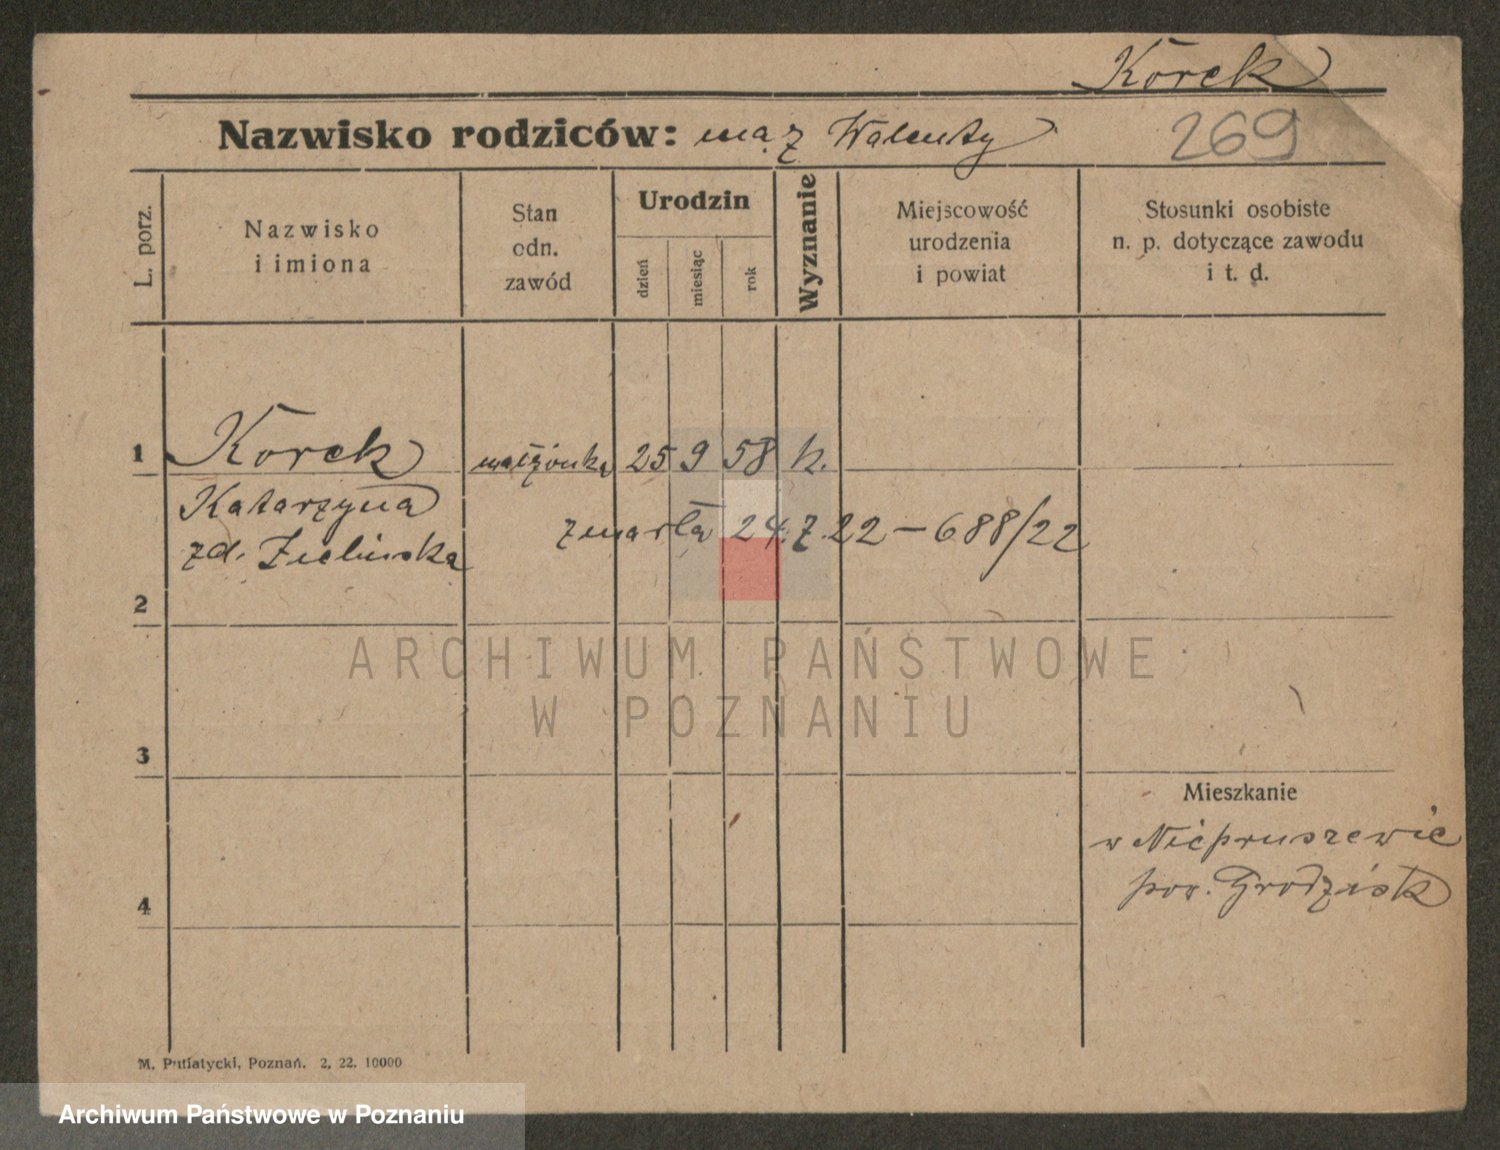 Korek
Nazwisko rodziców: mąż Walenty
269
L. porz.
Nazwisko
i imiona
Stan
odn.
zawód
Urodzin
dzień
miesiąc
rok
Wyznanie
Miejscowość
urodzenia
i powiat
Stosunki osobiste
n. p. dotyczące zawodu
i t. d.
1 Korek małżonka 25 9 58 k.
Katarzyna
zmarła 24.7.22 – 688/22
zd. Zielińska
2
ARCHIWUM PAŃSTWOWE
W POZNANIU
3
Mieszkanie
w Niepruszewie
pow. Grodzisk
4
M. Putiatycki, Poznań. 2. 22. 10000
Archiwum Państwowe w Poznaniu